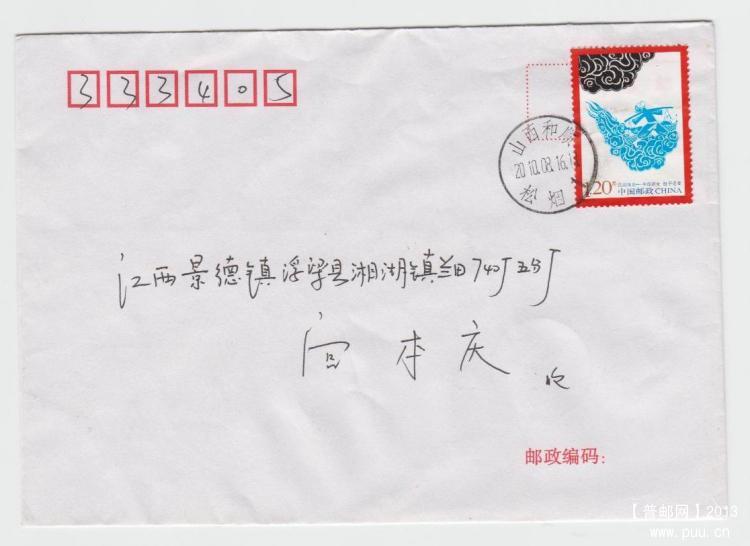 333405
120分
中国邮政CHINA
山西和顺
2010.08.16.
松烟
江西景德镇浮梁县湘湖镇兰田740厂五分厂
宫本庆 收
邮政编码:
【普邮网】2013
www.puu.cn